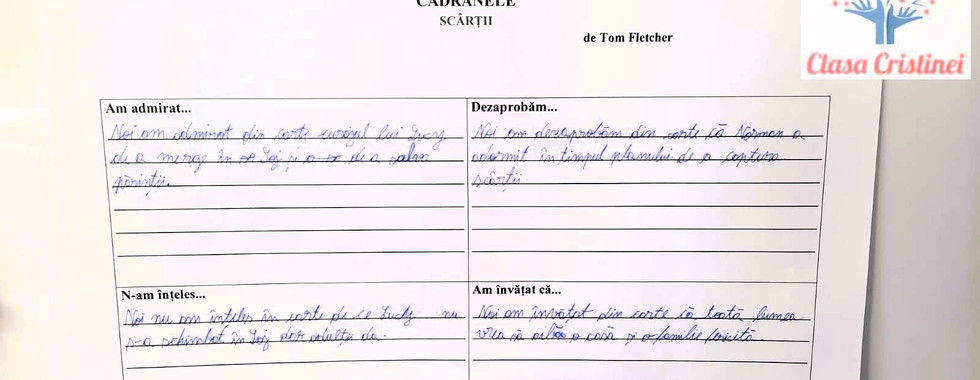 CADRANELE
SCÂRȚII
de Tom Fletcher
Clasa Cristinei
Am admirat...
Noi am admirat din carte curajul lui Lucy
de a merge în Joj și de a salva
părinții.
Dezaprobăm...
Noi am dezaprobăm din carte că Norman a
adormit în timpul planului de a captura
scârții.
N-am înțeles...
Noi nu am înțeles în carte de ce Lucy nu
s-a schimbat în Joj dar adulții da.
Am învățat că...
Noi am învățat din carte că toată lumea
vrea să aibă o casă și o familie fericită.